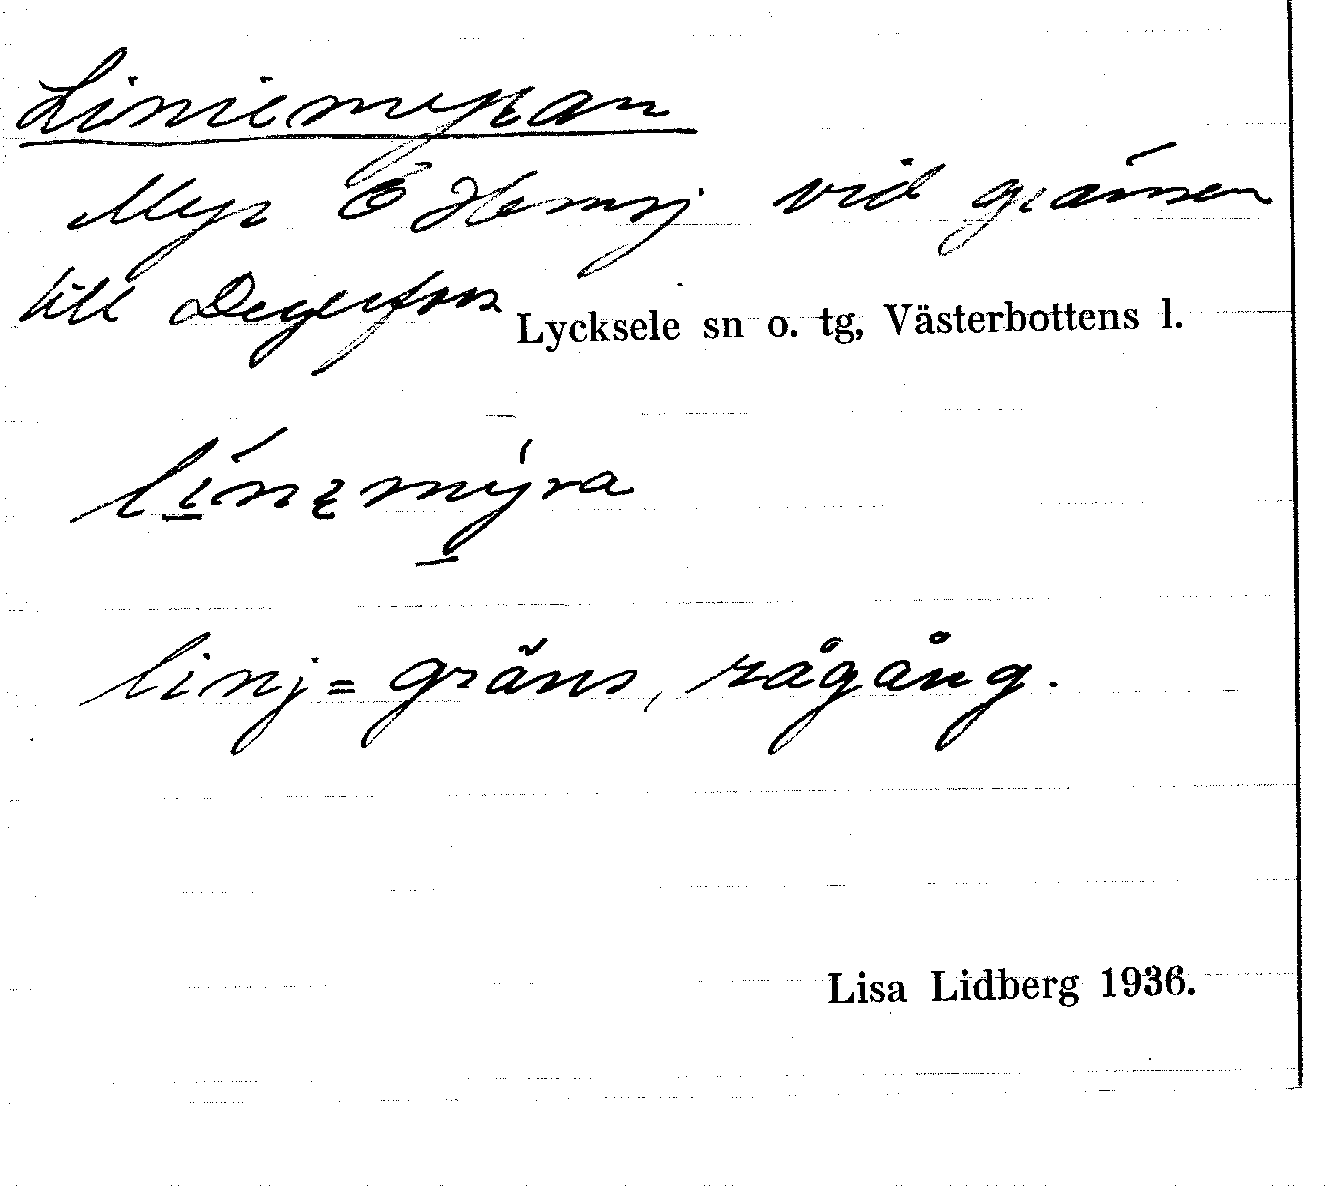 Liniemyran
Myr Ö Hemsj vid gränsen
till Degerfors
Lycksele sn o. tg, Västerbottens l.
linj = gräns, rågång.
Lisa Lidberg 1936.